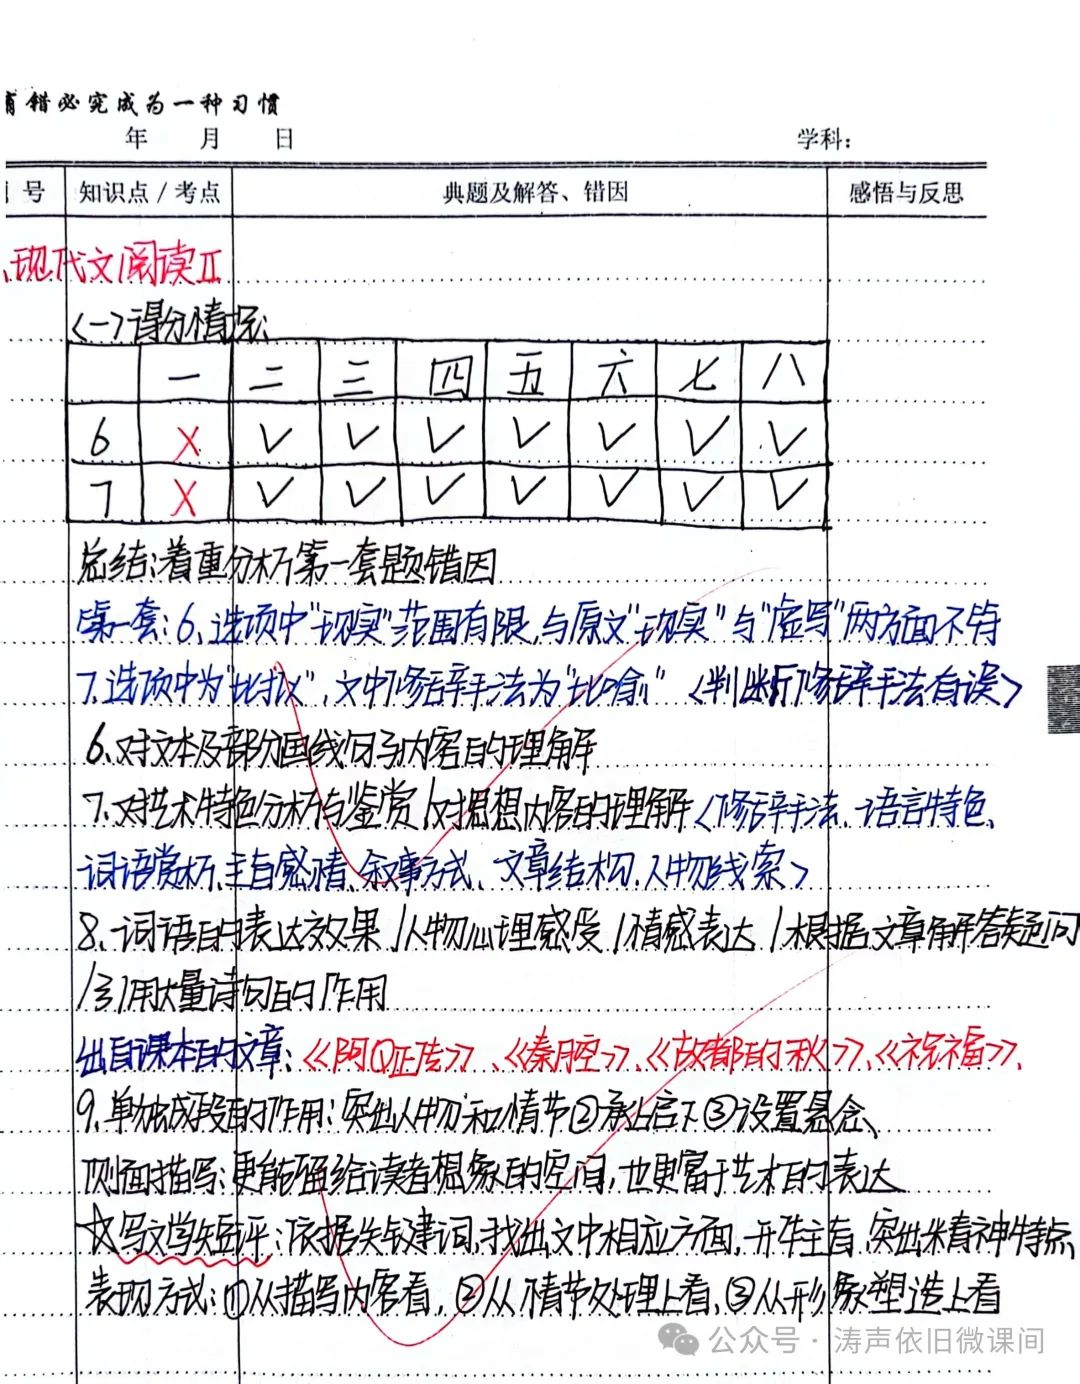 有错必究成为一种习惯
年 月 日 学科：
题号 知识点/考点 典题及解答、错因 感悟与反思
、现代文阅读Ⅱ
<一>得分情况：
一 二 三 四 五 六 七 八
6 × ✓ ✓ ✓ ✓ ✓ ✓ ✓
7 × ✓ ✓ ✓ ✓ ✓ ✓ ✓
总结：着重分析第一套题错因
第一套：6、选项中“现实”范围有限，与原文“现实”与“虚写”两方面不符
7、选项中为“比拟”，文中修辞手法为“比喻”<判断修辞手法有误>
6、对文本及部分画线句子内容的理解
7、对艺术特色分析与鉴赏/对思想内容的理解<修辞手法、语言特色、
词语赏析、主旨感情、叙事方式、文章结构、人物线索>
8、词语的表达效果/人物心理感受/情感表达/根据文章解答疑问
/引用大量诗句的作用
出自课本的文章：《阿Q正传》、《秦腔》、《故都的秋》、《祝福》、
9、单独成段的作用：突出人物和情节②承上启下③设置悬念、
侧面描写：更能留给读者想象的空间，也更富于艺术的表达
☆写文学短评：依据关键词，找出文中相应方面，开篇主旨，突出精神特点、
表现方式：①从描写内容看，②从情节处理上看，③从形象塑造上看
公众号·涛声依旧微课间